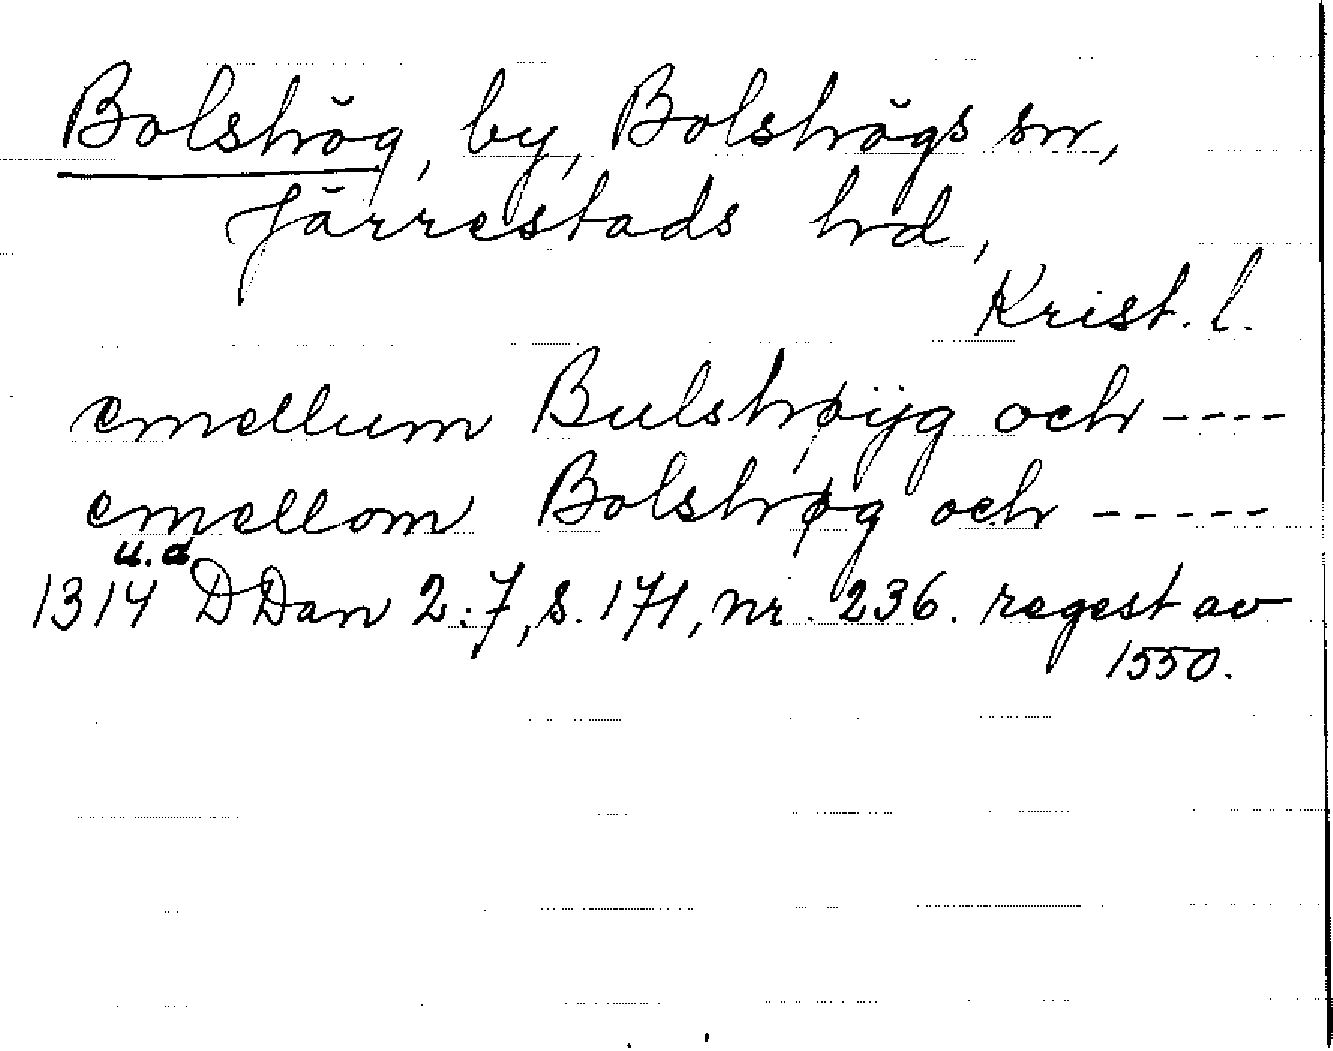 Bolshög, by, Bolshögs sn,
Järrestads hrd,
Krist. l.
emellum Bulshøÿg och ----
emellom Bolshøg och -----
u.d
1314 DDan 2:7, s. 171, nr. 236. regest av
1550.